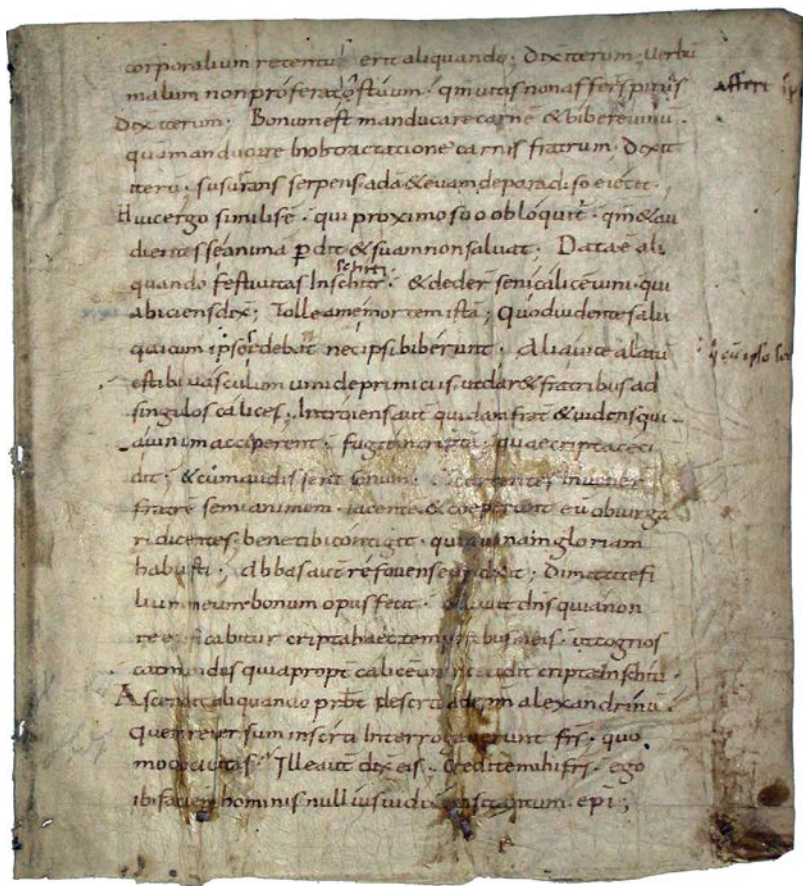 corporalium retentus erit aliquando; Dix iterum; Uerbū
malum non proferat os tuum. qm uitis non affert spinas
Dix iterum; Bonum est manducare carnē & bibere uinū.
quā manducare in obtractatione carnis fratrum; Dixit
iterū; susurrans serpens adā & euam de paradiso eiecit.
Huic ergo similis ē. qui proximo suo obloquit. qm & au
dientes se anima pdit & suam non saluat; Data ē ali
quando festiuitas In schiti. & deder seni calicē uini. qui
abiciens dix; Tolle a me mortem istā; Quod uidentes alii
qui cum ipso edebāt nec ipsi biberunt. Alia uice alatū
est ibi uasculum uini de primiciis. ut dar& fratribus ad
singulos calices; Introiens aut quidam frat & uidens qui
uinum acciperent. fugit in criptā. quae cripta ceci
dit; & cum audissent sonum. currentes inuener
fratrē semianimem. iacentē & coeperunt eū obiurga
ri dicentes; bene tibi contigit. quia uanam gloriam
habuisti; Abbas aut refouens eum dixit; Dimittite fi
lium meum bonum opus fecit. uiuit dns quia non
reedificabitur cripta haec temporibus meis. ut cognos
cat mundus quia propt calicē uini cecidit cripta In schiti.
Ascendit aliquando prbt de scti ad epm alexandrinū.
reuersum in sciti Interrogauerunt frs. quo
modo ciuitas. Ille aut dix eis. Credite mihi frs. ego
ibi faciem hominis nullius uidi nisi tantum. epi;
affert